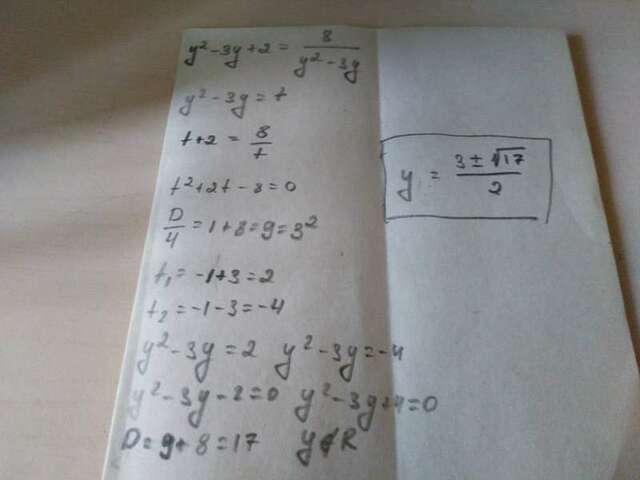 y² - 3y + 2 = 8 / (y² - 3y)
y² - 3y = t
t + 2 = 8 / t
t² + 2t - 8 = 0
D/4 = 1 + 8 = 9 = 3²
t₁ = -1 + 3 = 2
t₂ = -1 - 3 = -4
y² - 3y = 2 y² - 3y = -4
y² - 3y - 2 = 0 y² - 3y + 4 = 0
D = 9 + 8 = 17 y ∉ R
y = (3 ± √17) / 2